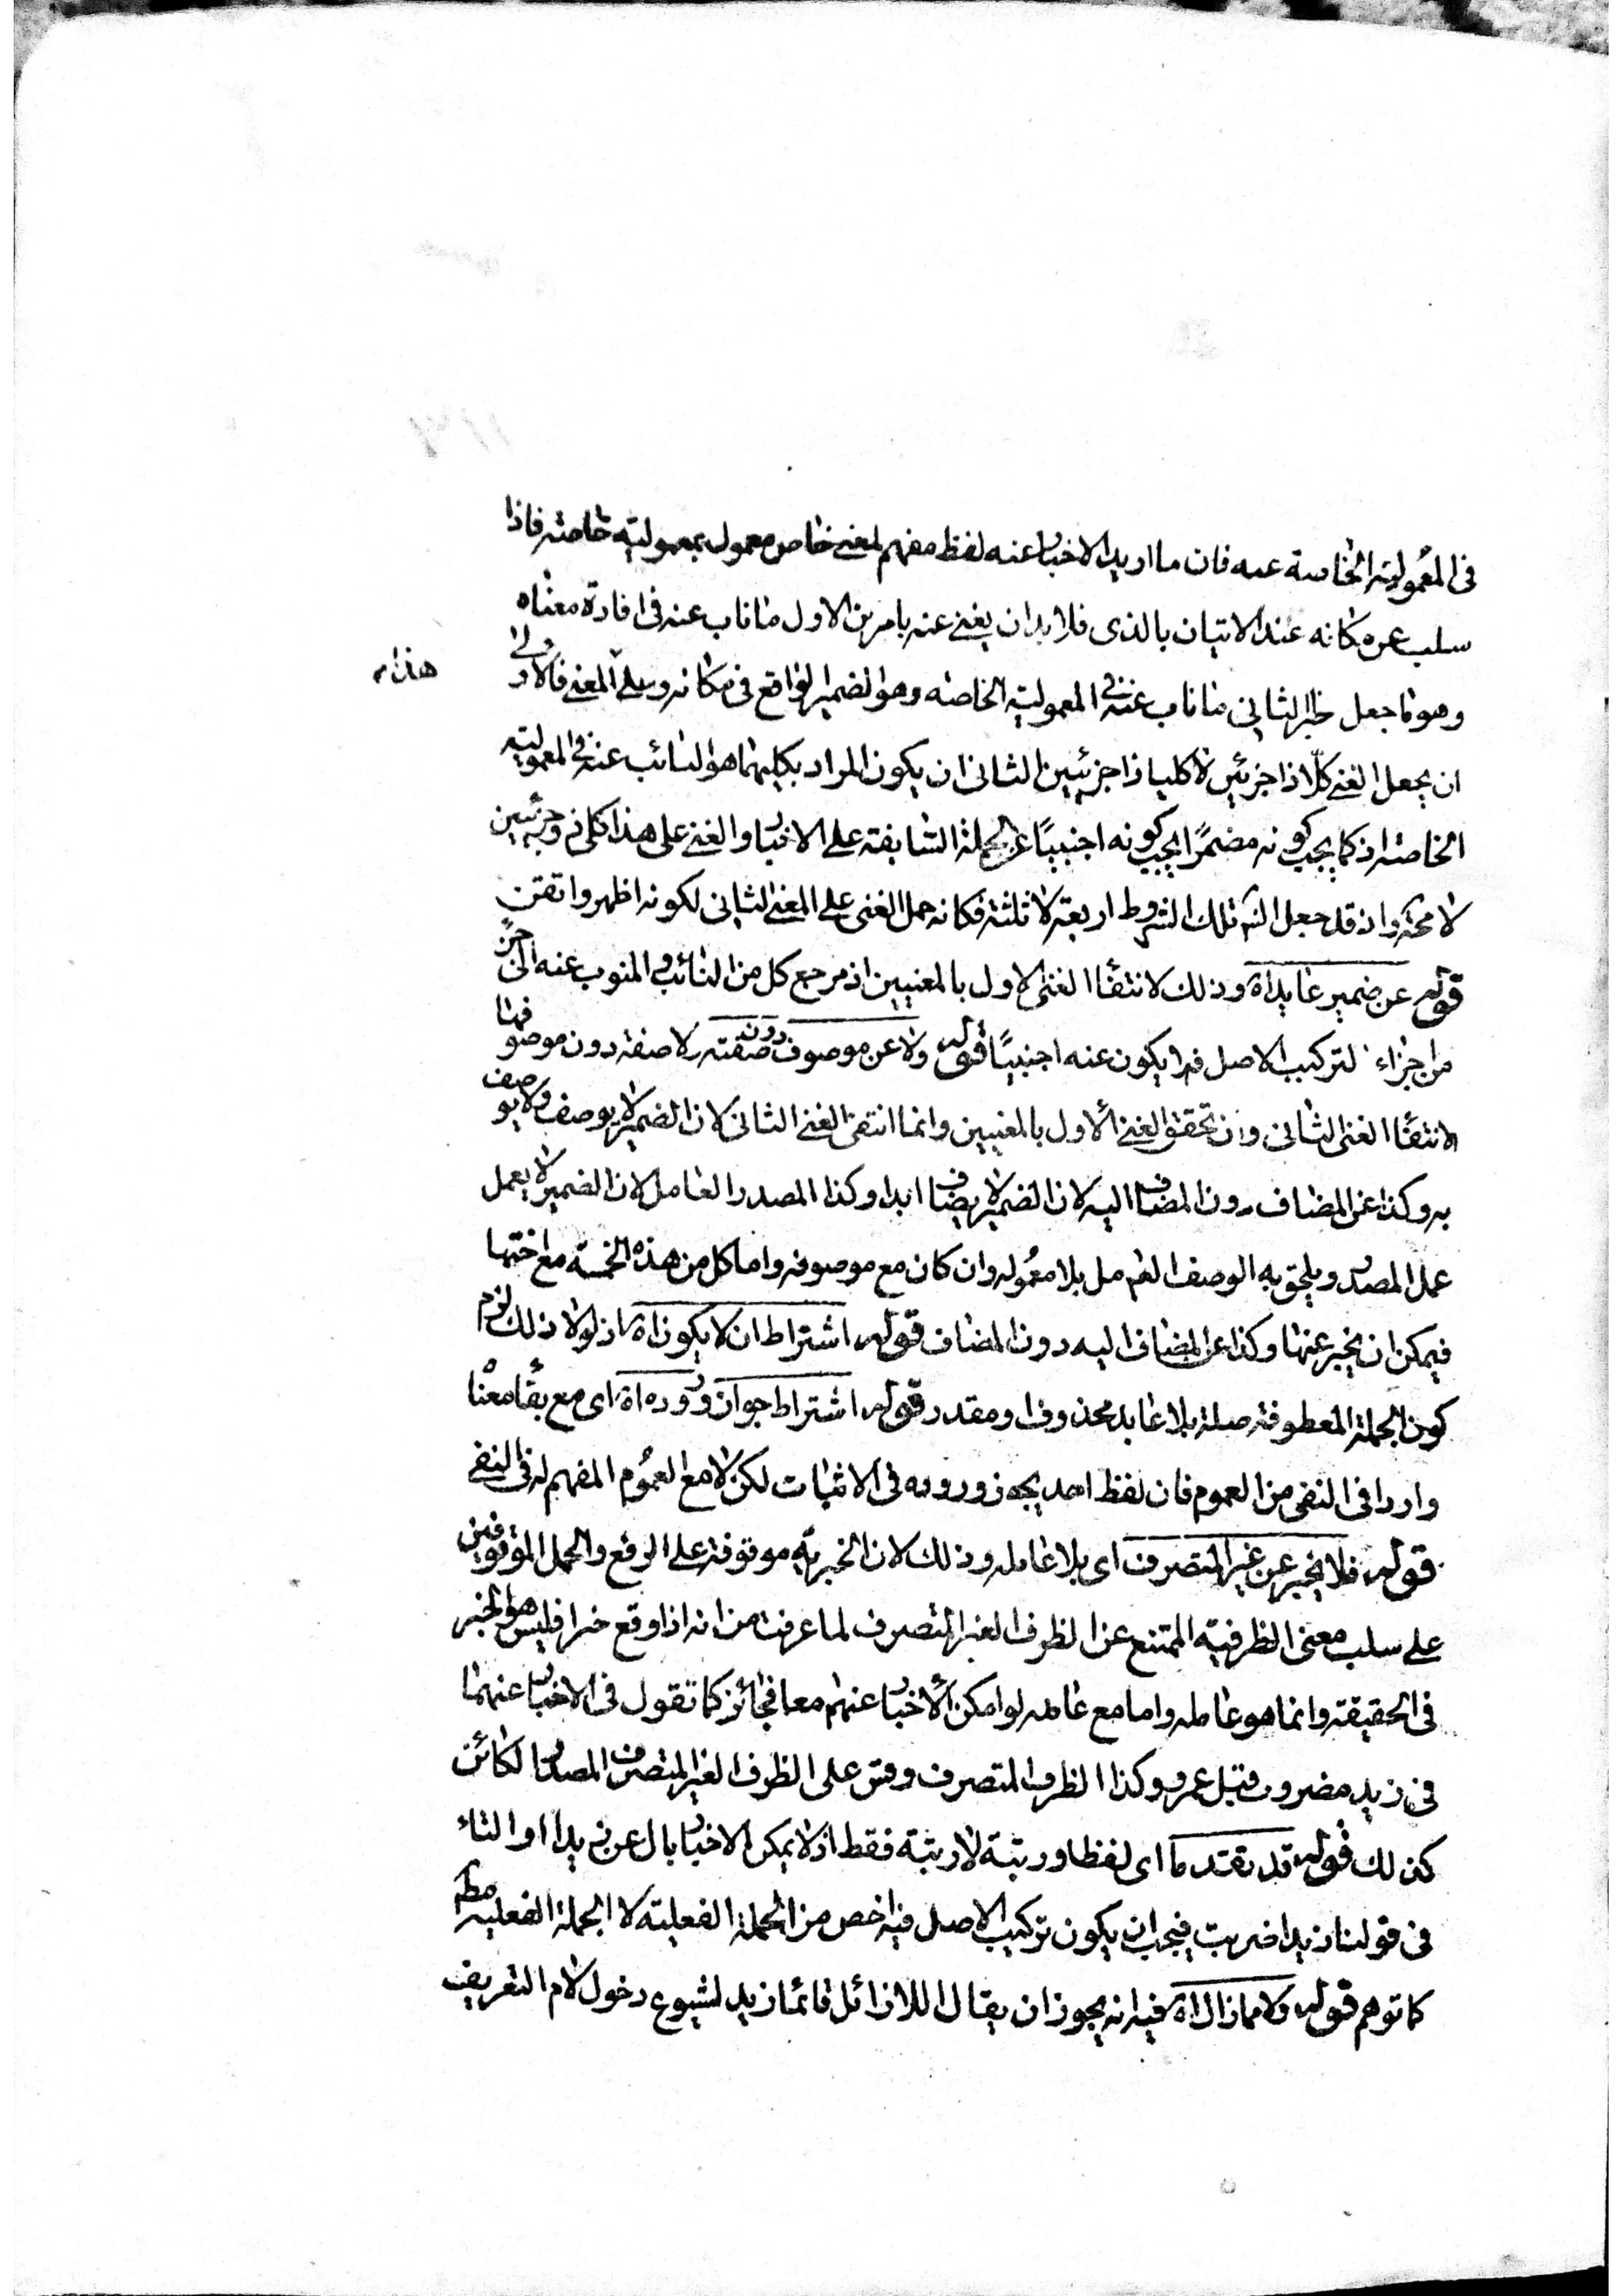 فى المعموليته الخاصة عنه فان ما اريد الاخبار عنه لفظ مفهم لمعنى خاص معمول بمعموليته خاصته فاذا
سلب عن مكانه عند الاتيان بالذى فلا بد ان يغنى عنه بامرين الاول ما ناب عنه فى افادة معناه
وهو ما جعل خبرا لثانى ما ناب عنه فى المعموليته الخاصته وهو الضمير الواقع فى مكانه وعلى المعنى فالاولى
هذا
ان يجعل الغنى كلّا ذا جزئين لا كليا ذا جزئيين الثانى ان يكون المراد بكليهما هو النائب عنه فى المعموليته
الخاصته اذ كما يجب كونه مضمرًا يجب كونه اجنبيًا عن الجملة السابقته على الاخبار والغنى على هذا كلى ذو جزئيين
لا محة وان قد جعل الش تلك الشروط اربعة لا ثلثة فكانه حمل الغنى على المعنى الثانى لكونه اظهر واتقن
قوله عن ضمير عايد اة وذلك لانتفا الغنى الاول بالمعنيين اذ مرجع كل من النائب والمنوب عنه الى جزء
من اجزاء التركيب الاصل فلا يكون عنه اجنبيًا قوله ولا عن موصوف دون صفته ولا صفة دون موصوفها
لانتفا الغنى الثانى وان تحقق الغنى الاول بالمعنيين وانما انتفى الغنى الثانى لان الضمير لا يوصف ولا يوصف
به وكذا عن المضاف دون المضاف اليه لان الضمير لا يضاف ابدا وكذا المصدر العامل لان الضمير لا يعمل
عمل المصدر ويلحق به الوصف العامل بلا معموله وان كان مع موصوفه واما كل من هذه الخمسة مع اختها
فيمكن ان يخبر عنها وكذا عن المضاف اليه دون المضاف قوله اشتراط ان لا يكون اة اذ لولا ذلك لزم
كون الجملة المعطوفته صلة بلا عايد محذوف او مقدر قوله اشتراط جواز وروده اة اى مع بقا معناه
واردا فى النفى من العموم فان لفظ احد يجوز وروده فى الاثبات لكن لا مع العموم المفهم له فى النفى
قوله فلا يخبر عن غير المتصرف اى بلا عامله وذلك لان الخبرية موقوفة على الرفع والحمل الموقوفين
على سلب معنى الظرفية الممتنع عن الظرف الغير المتصرف لما عرفت من انه اذا وقع خبرا فليس هو الخبر
فى الحقيقته وانما هو عامله واما مع عامله لو امكن الاخبار عنهم معا فجائز كما تقول فى الاخبار عنهما
فى زيد مضروب قبل عمرو وكذا الظرف المتصرف وقس على الظرف الغير المتصرف المصدر الكائن
كذلك قوله قد تقدما اى لفظا ورتبة لا رتبة فقط اذ لا يمكن الاخبار بال عن زيدا او التاء
فى قولنا زيدا ضربت فيجب ان يكون تركيب الاصل فيه اخص من الجملة الفعليته لا الجملة الفعليه مط
كما توهم قوله ولا مما زال اة فيه انه يجوز ان يقال اللازائل قائما زيد لشيوع دخول لام التعريف